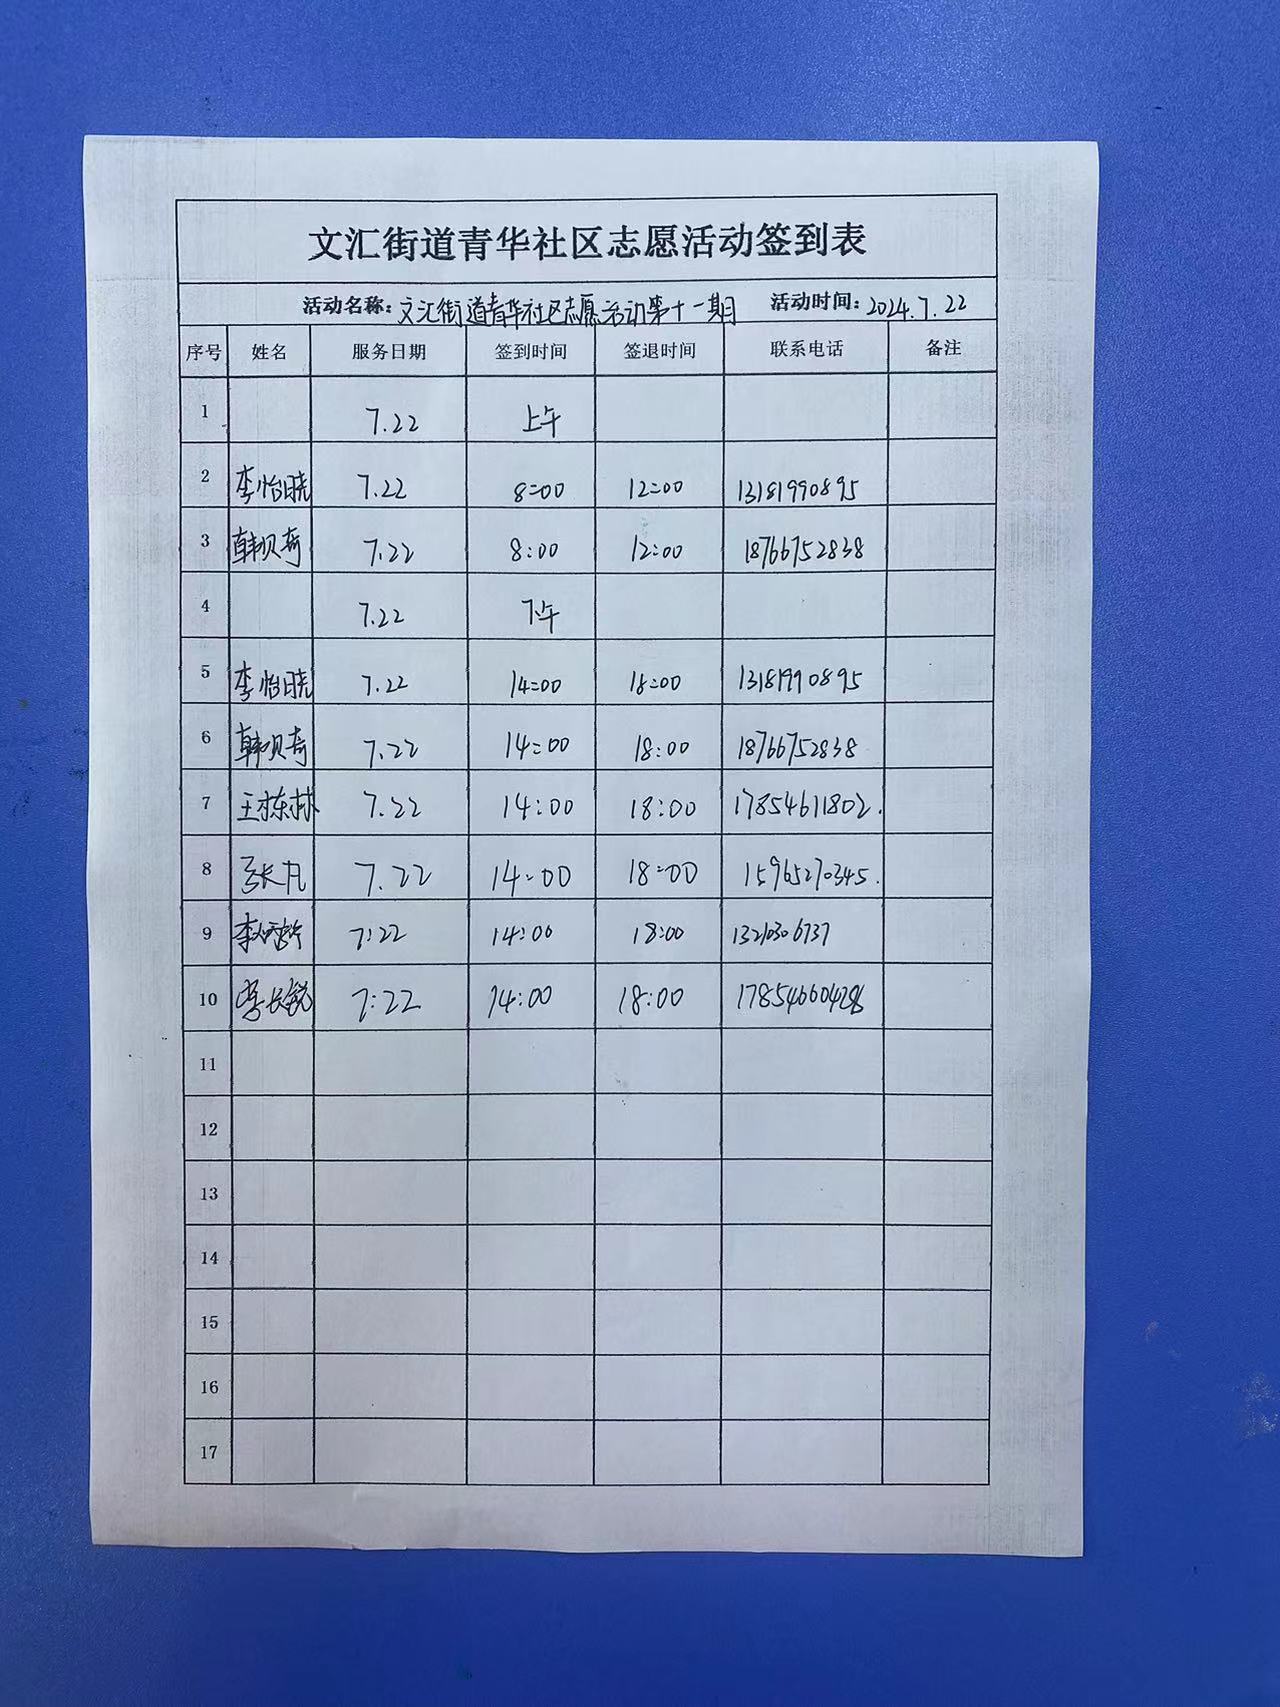 文汇街道青华社区志愿活动签到表
活动名称：文汇街道青华社区志愿活动第十一期 活动时间：2024.7.22
序号 姓名 服务日期 签到时间 签退时间 联系电话 备注
1 7.22 上午
2 李怡晓 7.22 8:00 12:00 13181990895
3 韩贝奇 7.22 8:00 12:00 18766752838
4 7.22 下午
5 李怡晓 7.22 14:00 18:00 13181990895
6 韩贝奇 7.22 14:00 18:00 18766752838
7 王栋林 7.22 14:00 18:00 17854611802.
8 张凡 7.22 14:00 18:00 15965270345.
9 7:22 14:00 18:00
10 7:22 14:00 18:00
11
12
13
14
15
16
17